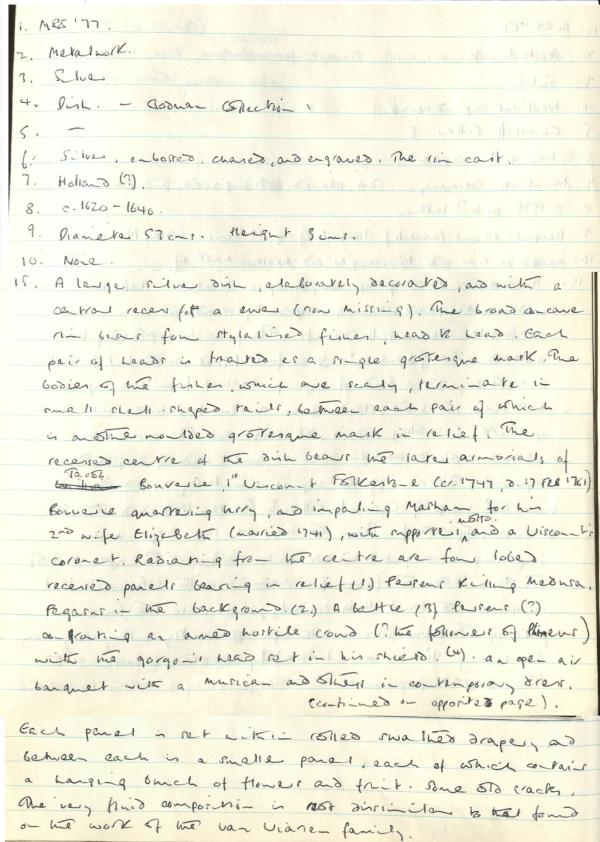 1. MRS '77.
2. Metalwork.
3. Silver
4. Dish. – Bodman Collection.
5. –
6. Silver, embossed, chased, and engraved. The rim cast.
7. Holland (?).
8. c. 1620 – 1640.
9. Diameter 53 cms. Height 3 cms.
10. None.
15. A large silver dish, elaborately decorated, and with a
central recess for a ewer (now missing). The broad concave
rim bears four stylalised fishes, head to head. Each
pair of heads is treated as a single grotesque mask. The
bodies of the fishes, which are scaly, terminate in
small shell-shaped tails, between each pair of which
is another moulded grotesque mask in relief. The
recessed centre of the dish bears the later armorials of
Jacob
Bouverie, 1st Viscount Folkestone (cr. 1747, d. 17 Feb 1761)
Bouverie quartering Urry, and impaling Masham, for his
2nd wife Elizabeth (married 1741), with supporters, motto, and a Viscount's
coronet. Radiating from the centre are four lobed
recessed panels bearing in relief (1) Perseus killing Medusa.
Pegasus in the background. (2) A battle (3) Perseus (?)
confronting an armed hostile crowd (? the followers of Phineus)
with the gorgon's head set in his shield. (4). an open air
banquet with a musician and others in contemporary dress.
(continued on opposite page).
Each panel is set within rolled swathed drapery and
between each is a smaller panel, each of which contains
a hanging bunch of flowers and fruit. Some old cracks.
The very fluid composition is not dissimilar to that found
on the work of the van Vianen family.